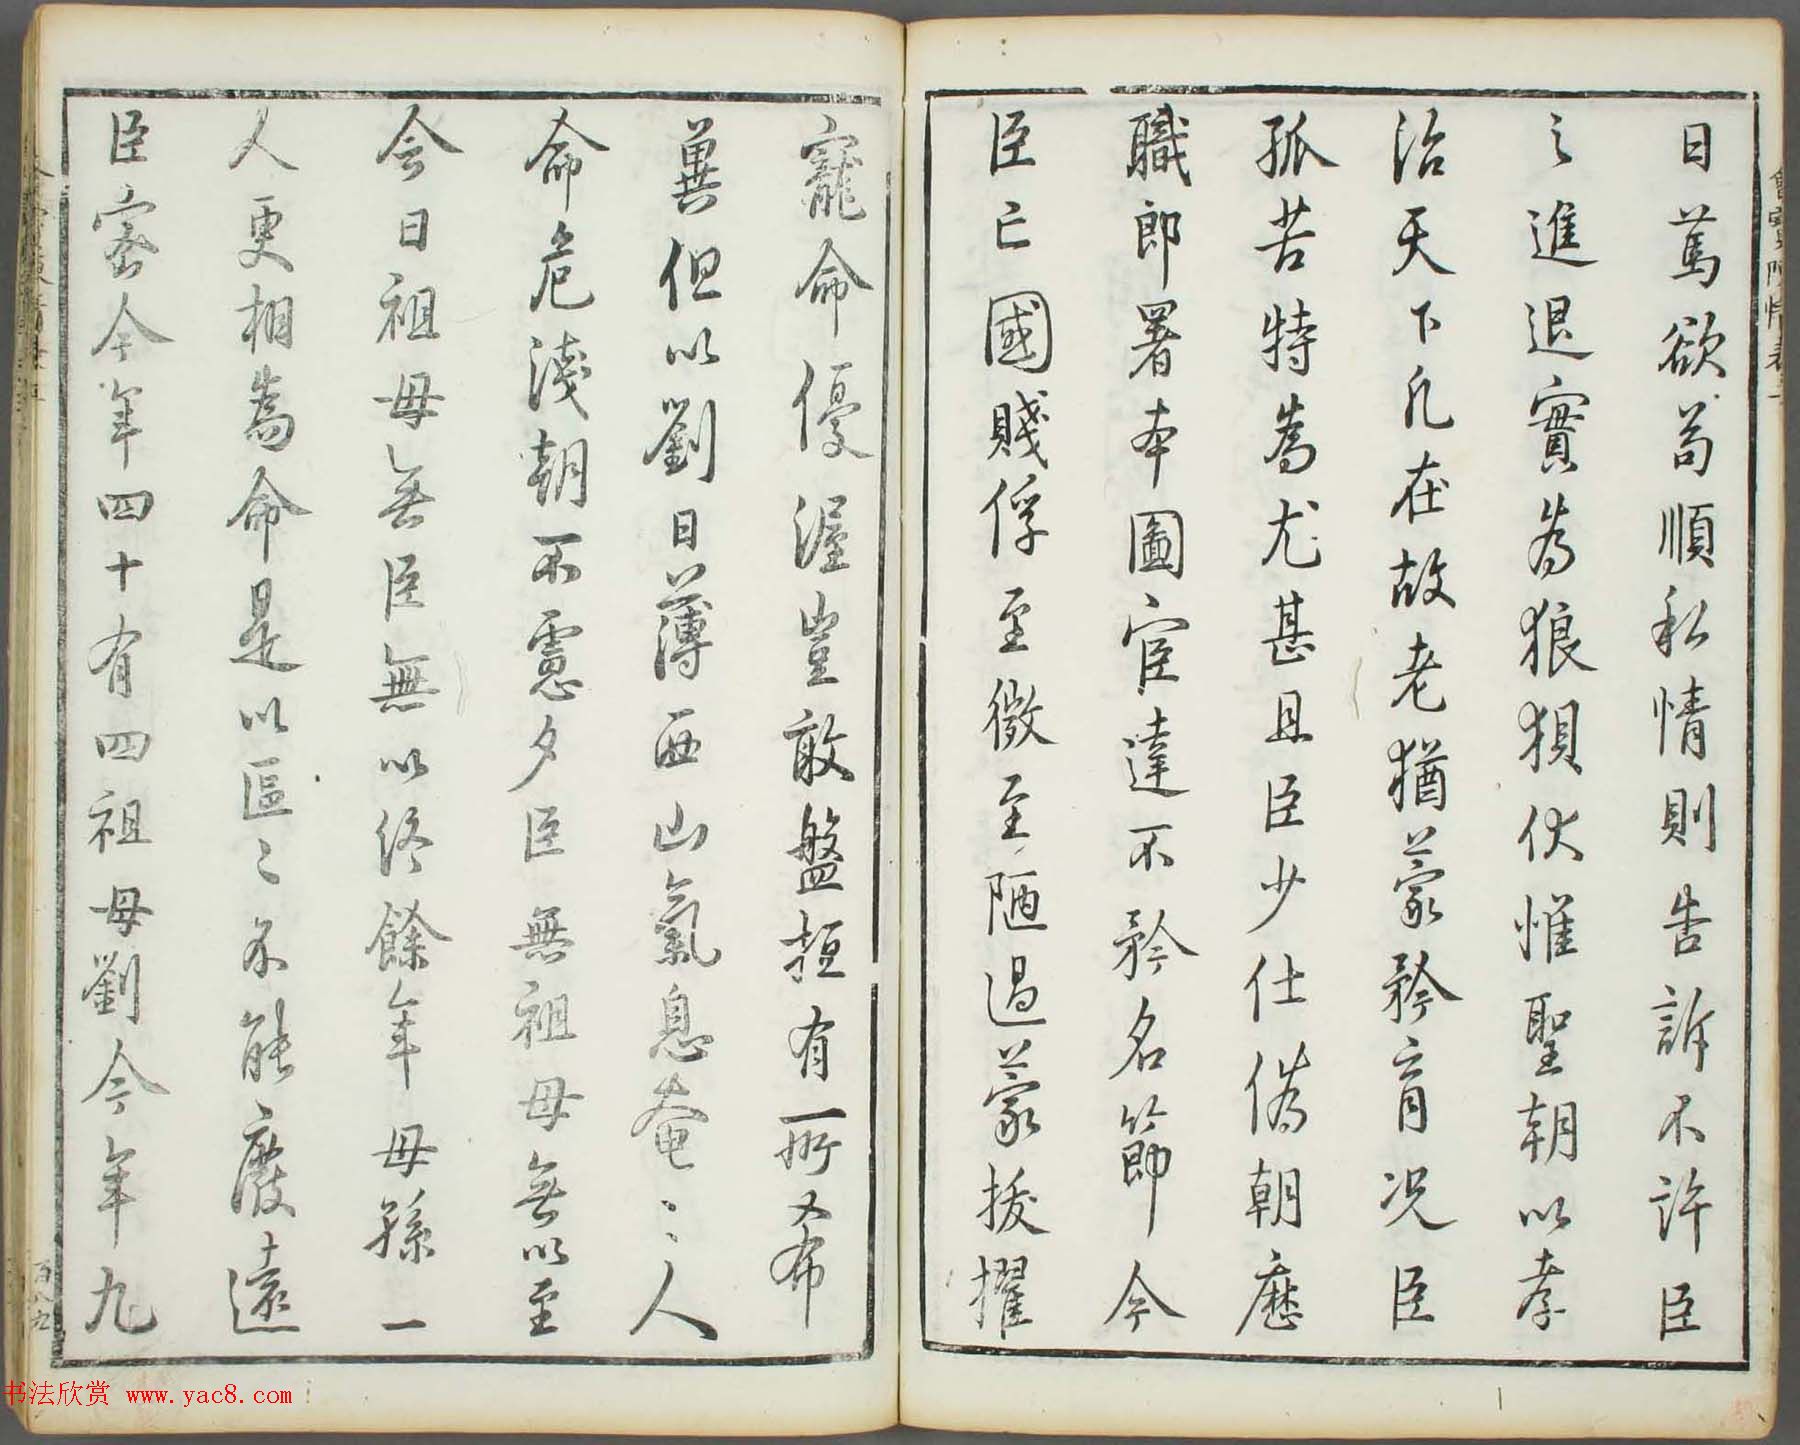 日篤欲苟順私情則告訴不許臣
之進退實為狼狽伏惟聖朝以孝
治天下凡在故老猶蒙矜育况臣
孤苦特為尤甚且臣少仕偽朝歷
職郎署本圖宦達不矜名節今
臣亡國賤俘至微至陋過蒙拔擢
寵命優渥豈敢盤桓有所希
冀但以劉日薄西山氣息奄〻人
命危淺朝不慮夕臣無祖母無以至
今日祖母無臣無以終餘年母孫一
人更相為命是以區〻不能廢遠
臣密今年四十有四祖母劉今年九
百八九
书法欣赏 www.yac8.com